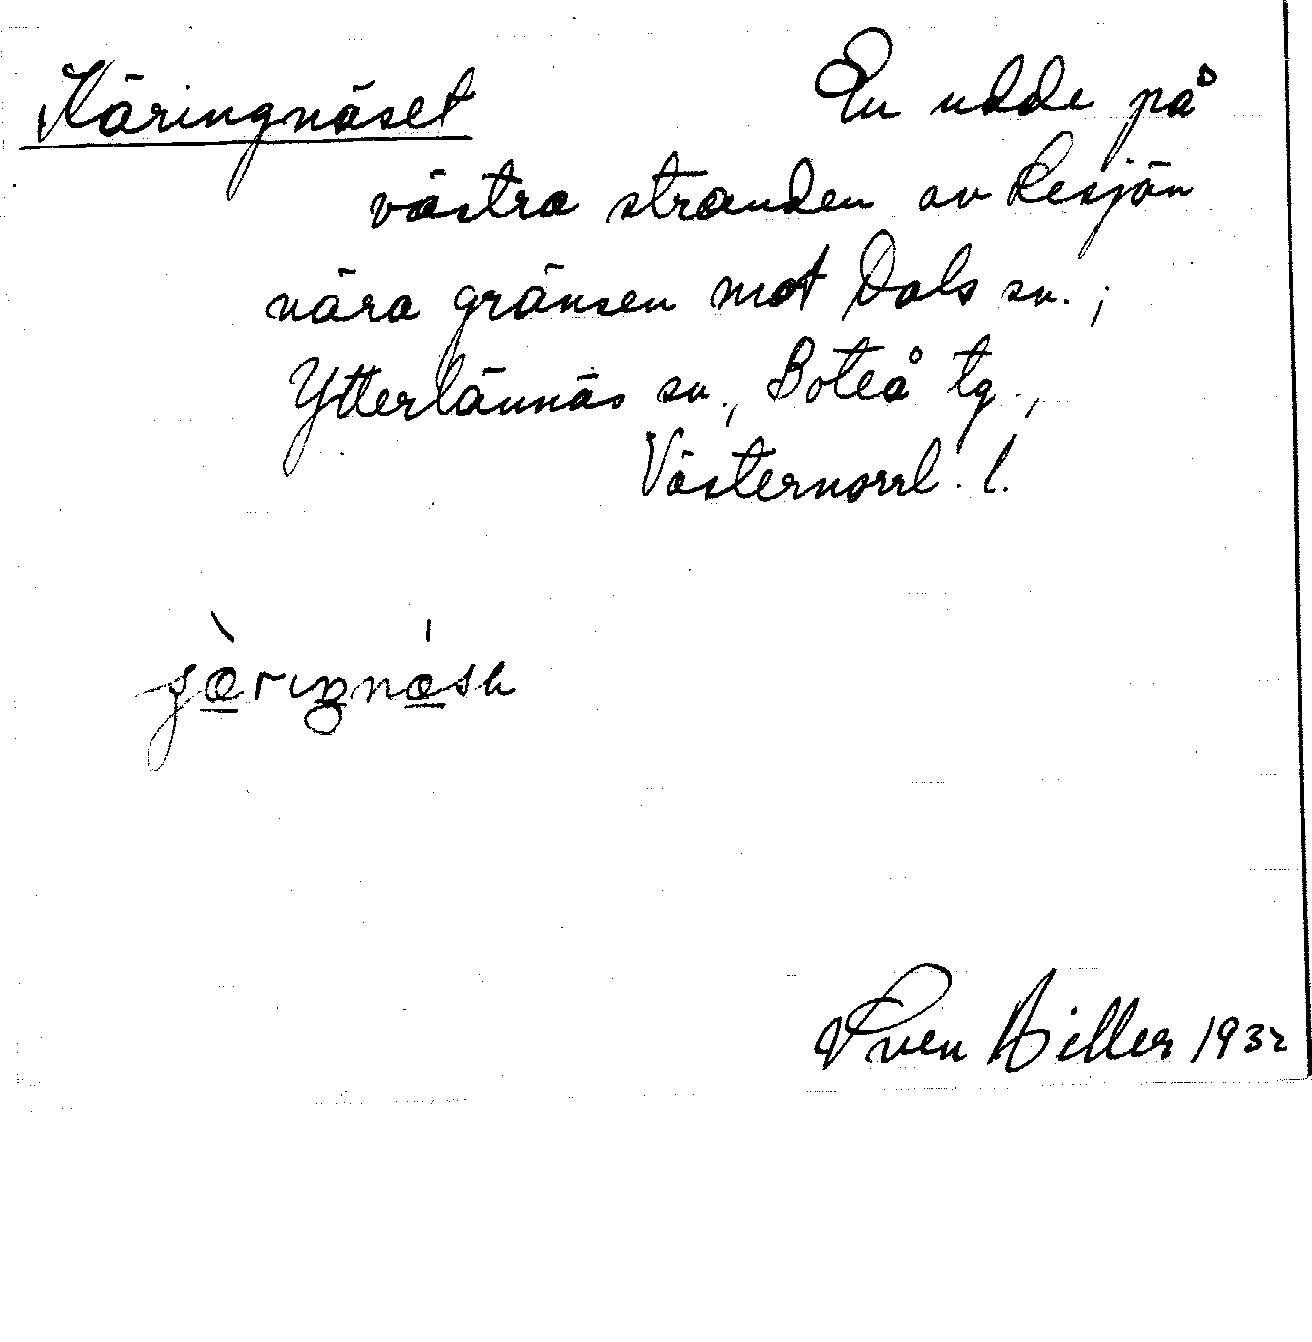 Käringnäset En udde på
västra stranden av Lesjön
nära gränsen mot Dals sn.;
Ytterlännäs sn., Boteå tg.,
Västernorrl. l.
Sven Hiller 1932